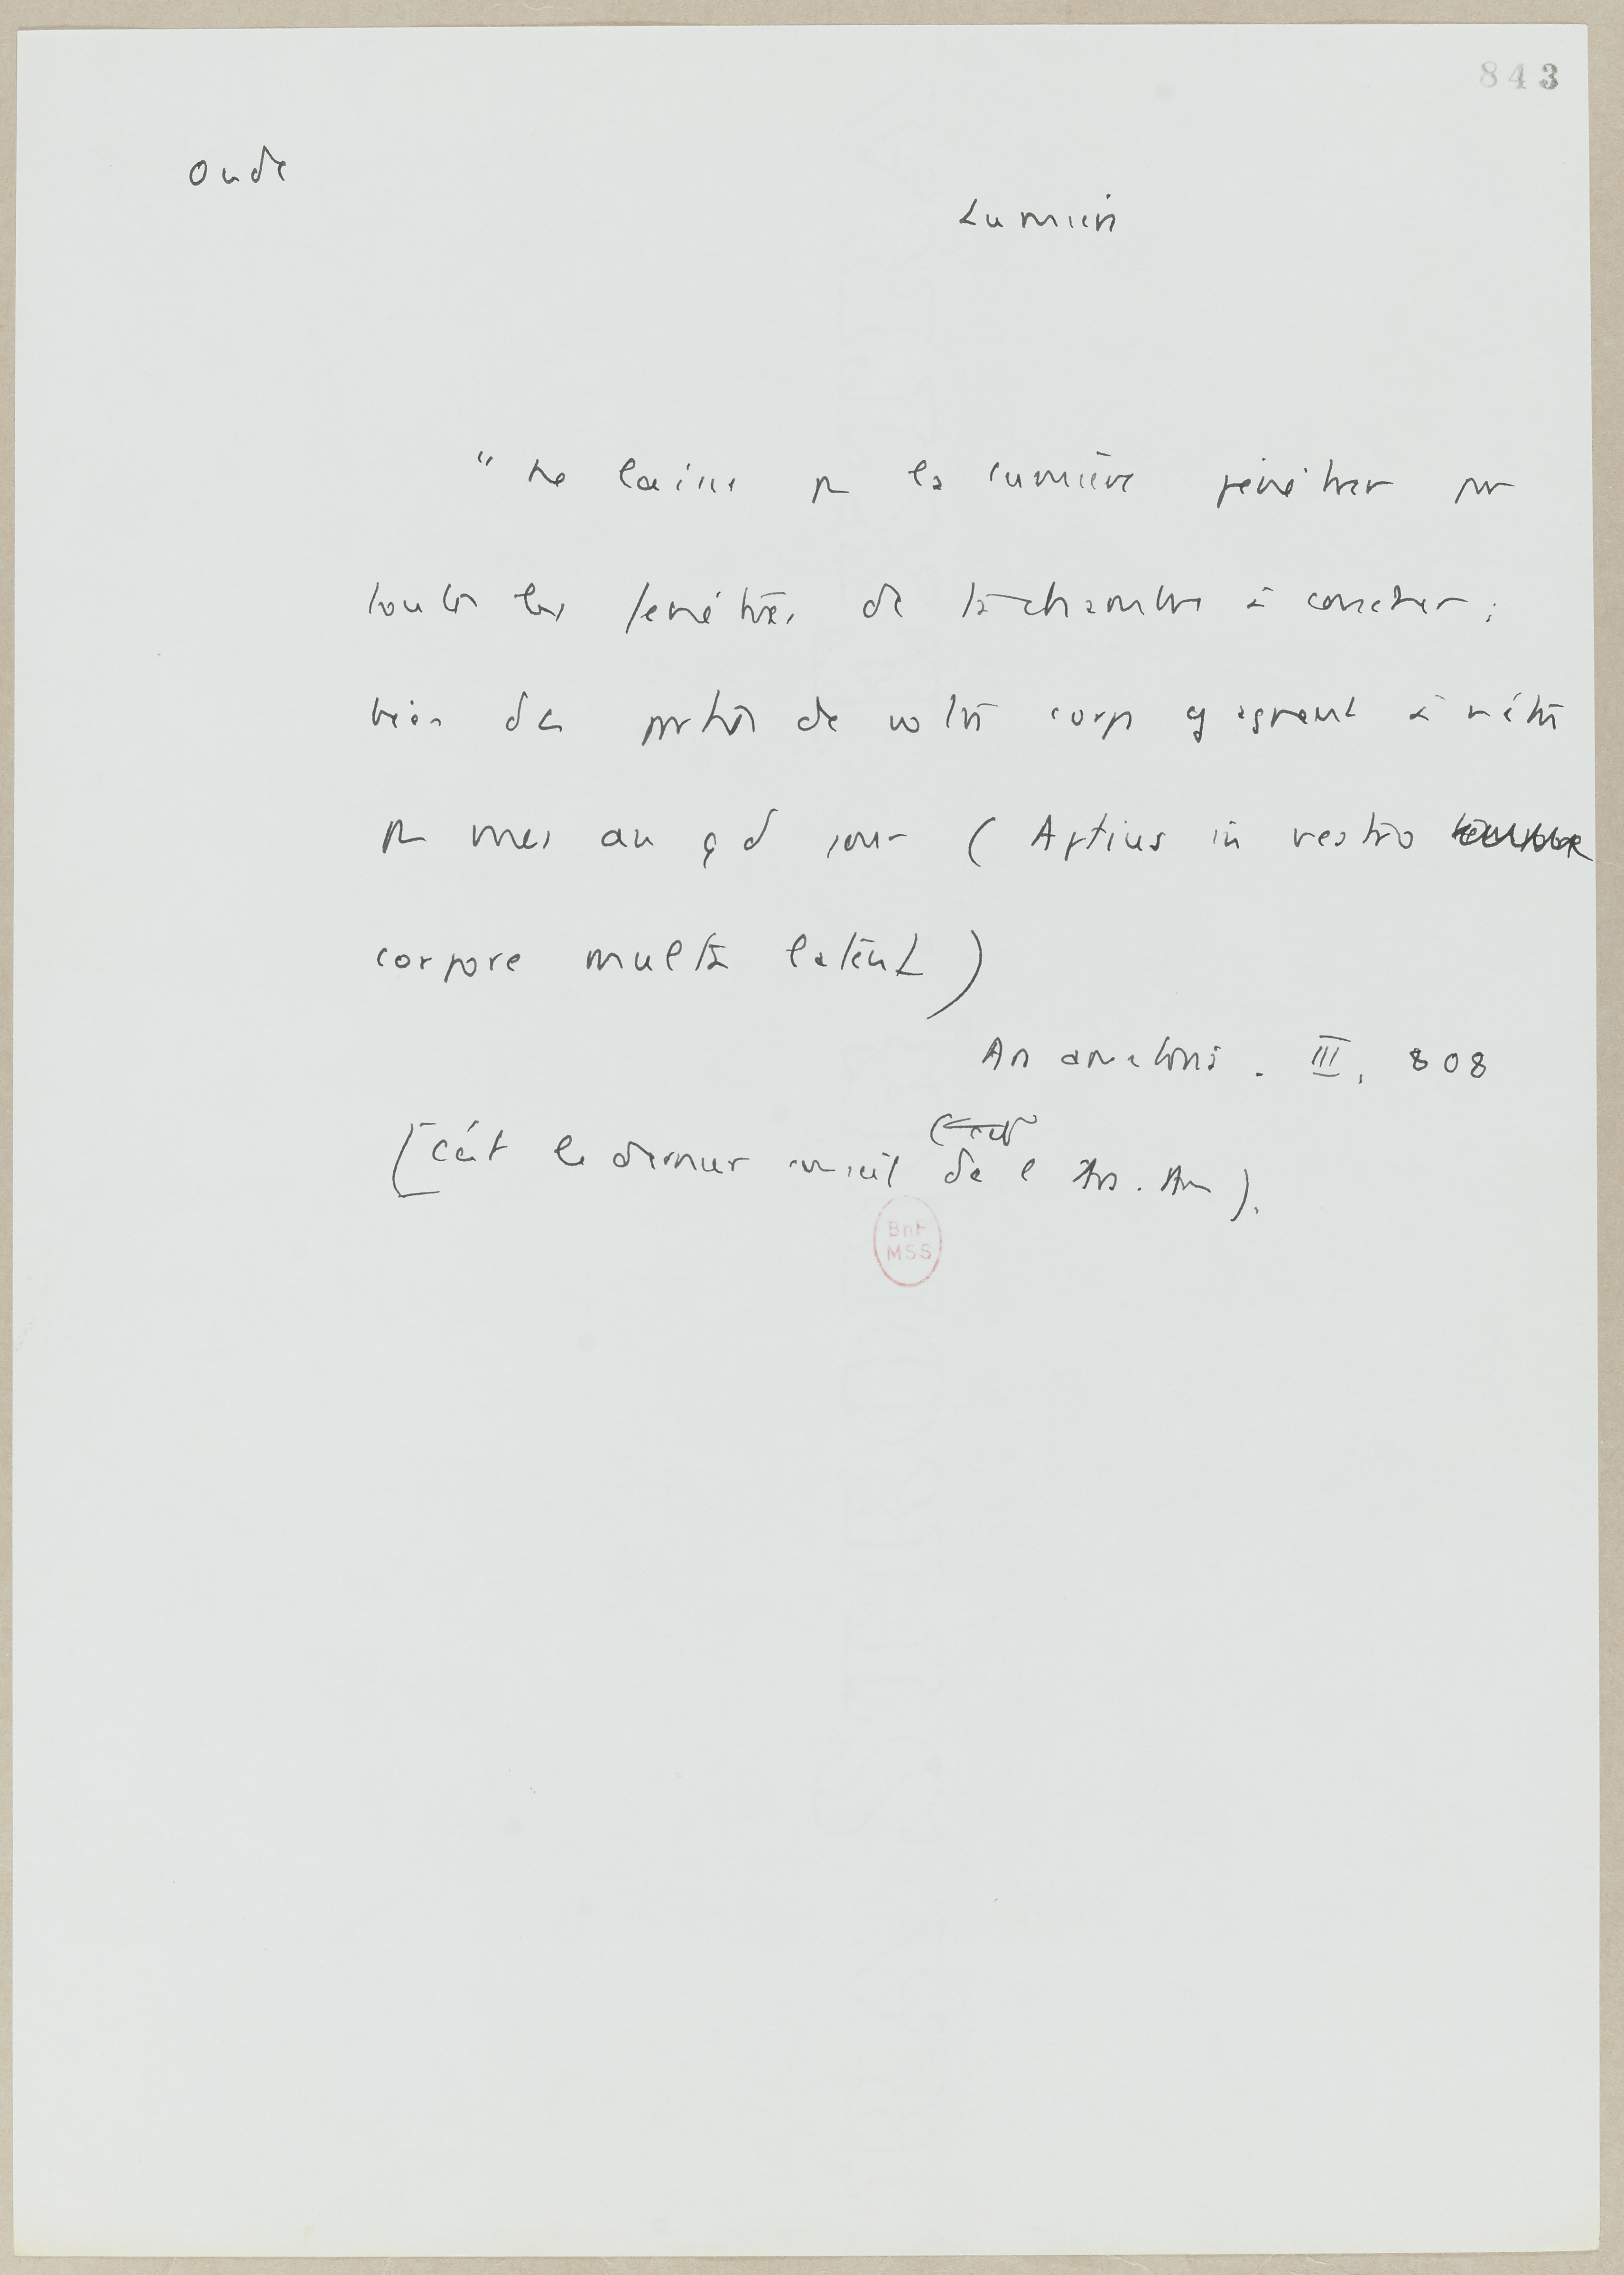 843
Ovide
Lumière
" Ne laissez pas la lumière pénétrer par
toutes les fenêtres de la chambre à coucher ;
bien des parties de votre corps gagnent à n'être
pas vues au gd jour ( Aptius in vestro
corpore multa latent )
Ars amatoria. III, 808
[ c'est le dernier conseil de l'Ars. Am ).
BnF
MSS